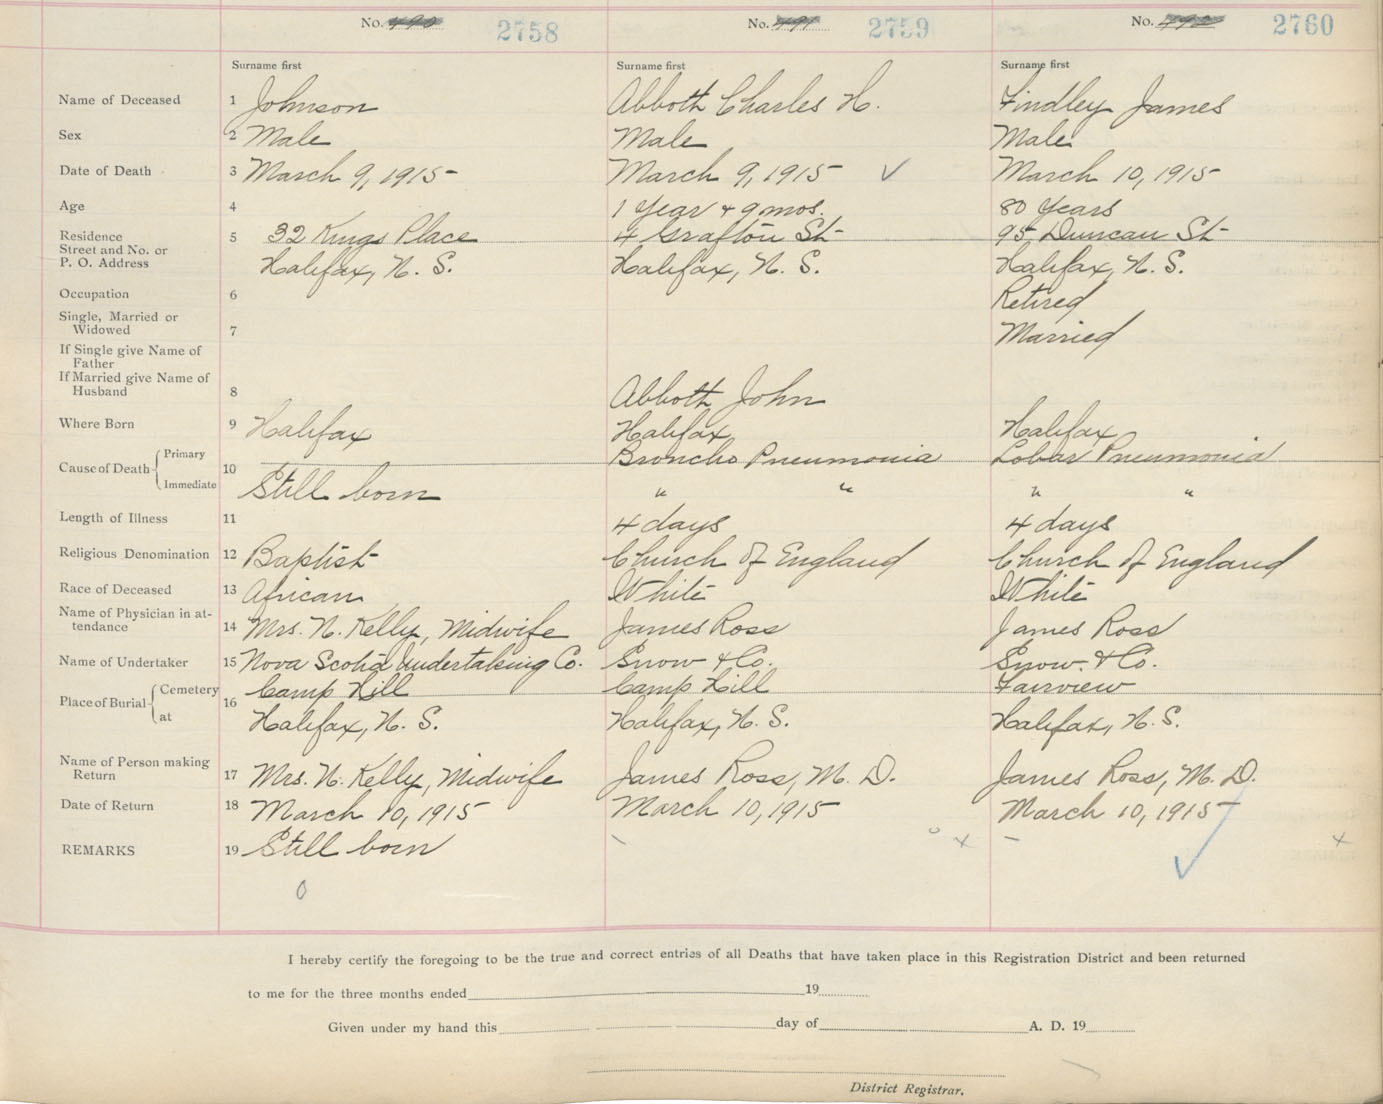 No. 490 2758 No. 491 2759 No. 492 2760
Surname first Surname first Surname first
Name of Deceased 1 Johnson Abboth Charles H. Findley James
Sex 2 Male Male Male
Date of Death 3 March 9, 1915 March 9, 1915 ✓ March 10, 1915
Age 4 1 Year + 9 mos. 80 Years
Residence
Street and No. or
P. O. Address
5 32 Kings Place 4 Grafton St 95 Duncan St
Halifax, N. S. Halifax, N. S. Halifax, N. S.
Occupation 6 Retired
Single, Married or
Widowed 7 Married
If Single give Name of
Father
If Married give Name of
Husband 8 Abboth John
Where Born 9 Halifax Halifax Halifax
Cause of Death Primary 10 Broncho Pneumonia Lobar Pneumonia
Immediate Still born " " " "
Length of Illness 11 4 days 4 days
Religious Denomination 12 Baptist Church of England Church of England
Race of Deceased 13 African White White
Name of Physician in at-
tendance 14 Mrs. N. Kelly, Midwife James Ross James Ross
Name of Undertaker 15 Nova Scotia Undertaking Co. Snow & Co. Snow. & Co.
Place of Burial Cemetery 16 Camp Hill Camp Hill Fairview
at Halifax, N. S. Halifax, N. S. Halifax, N. S.
Name of Person making
Return 17 Mrs. N. Kelly, Midwife James Ross, M. D. James Ross, M. D.
Date of Return 18 March 10, 1915 March 10, 1915 March 10, 1915
REMARKS 19 Still born x x
0 ✓
I hereby certify the foregoing to be the true and correct entries of all Deaths that have taken place in this Registration District and been returned
to me for the three months ended 19
Given under my hand this day of A. D. 19
District Registrar.